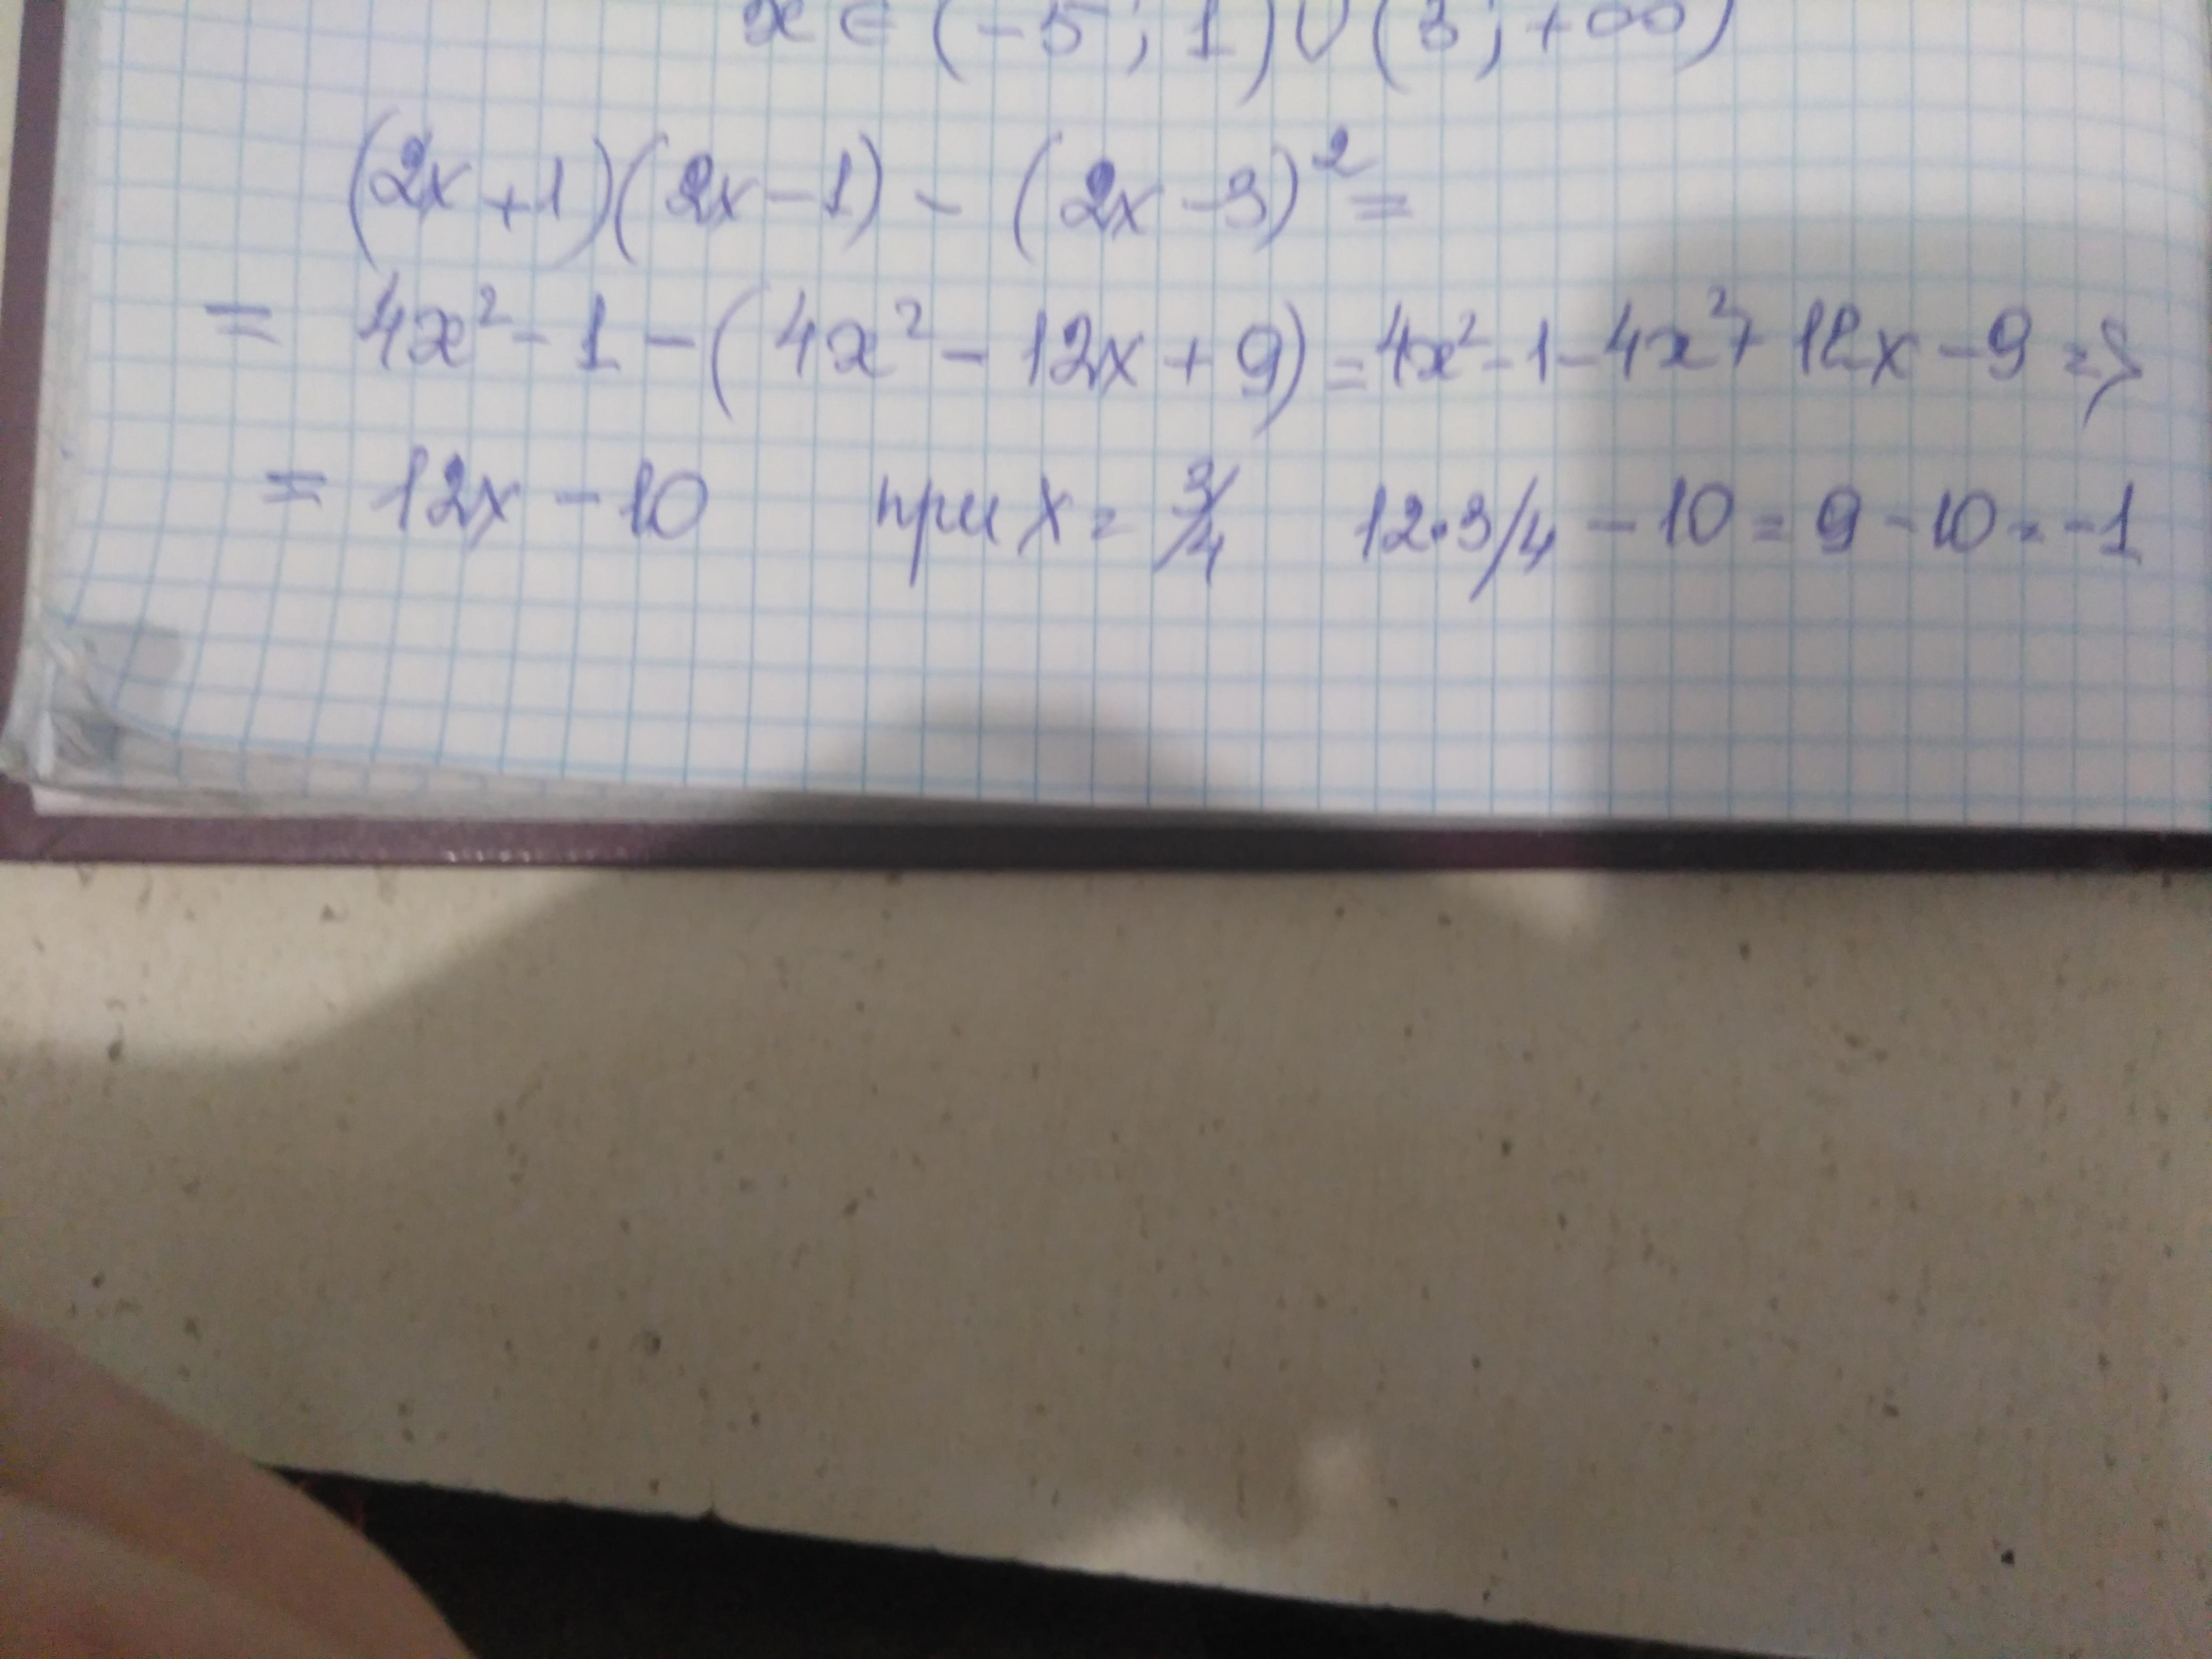 x ∈ (-5; 1) ∪ (3; +∞)
(2x+1)(2x-1) - (2x-3)² =
= 4x² - 1 - (4x² - 12x + 9) = 4x² - 1 - 4x² + 12x - 9 =>
= 12x - 10 при x = 3/4 12·3/4 - 10 = 9 - 10 = -1